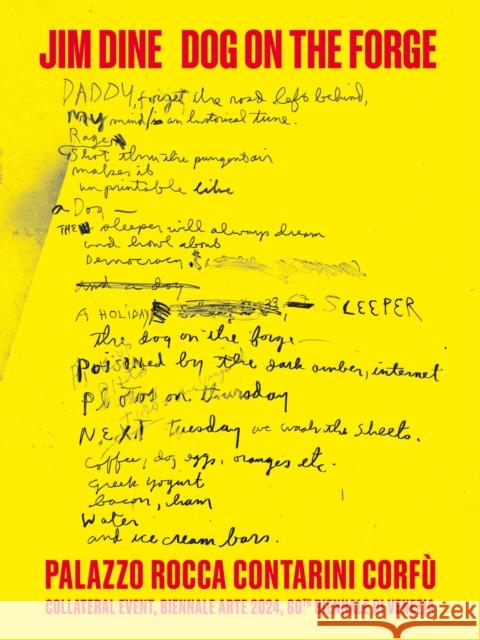 JIM DINE DOG ON THE FORGE
DADDY, forget the road left behind,
my mind/is an historical tune.
Rage
Shot thru the pungent air
makes it
unprintable like
a Dog —
THE sleeper will always dream
and howl about
Democracy.
and a dog
A HOLIDAY SLEEPER
the dog on the forge —
Poisoned by the dark amber, internet
photos on thursday
NEXT tuesday we wash the sheets.
coffee, dog eggs, oranges etc.
greek yogurt
bacon, ham
Water
and ice cream bars.
PALAZZO ROCCA CONTARINI CORFÙ
COLLATERAL EVENT, BIENNALE ARTE 2024, 60TH BIENNALE DI VENEZIA